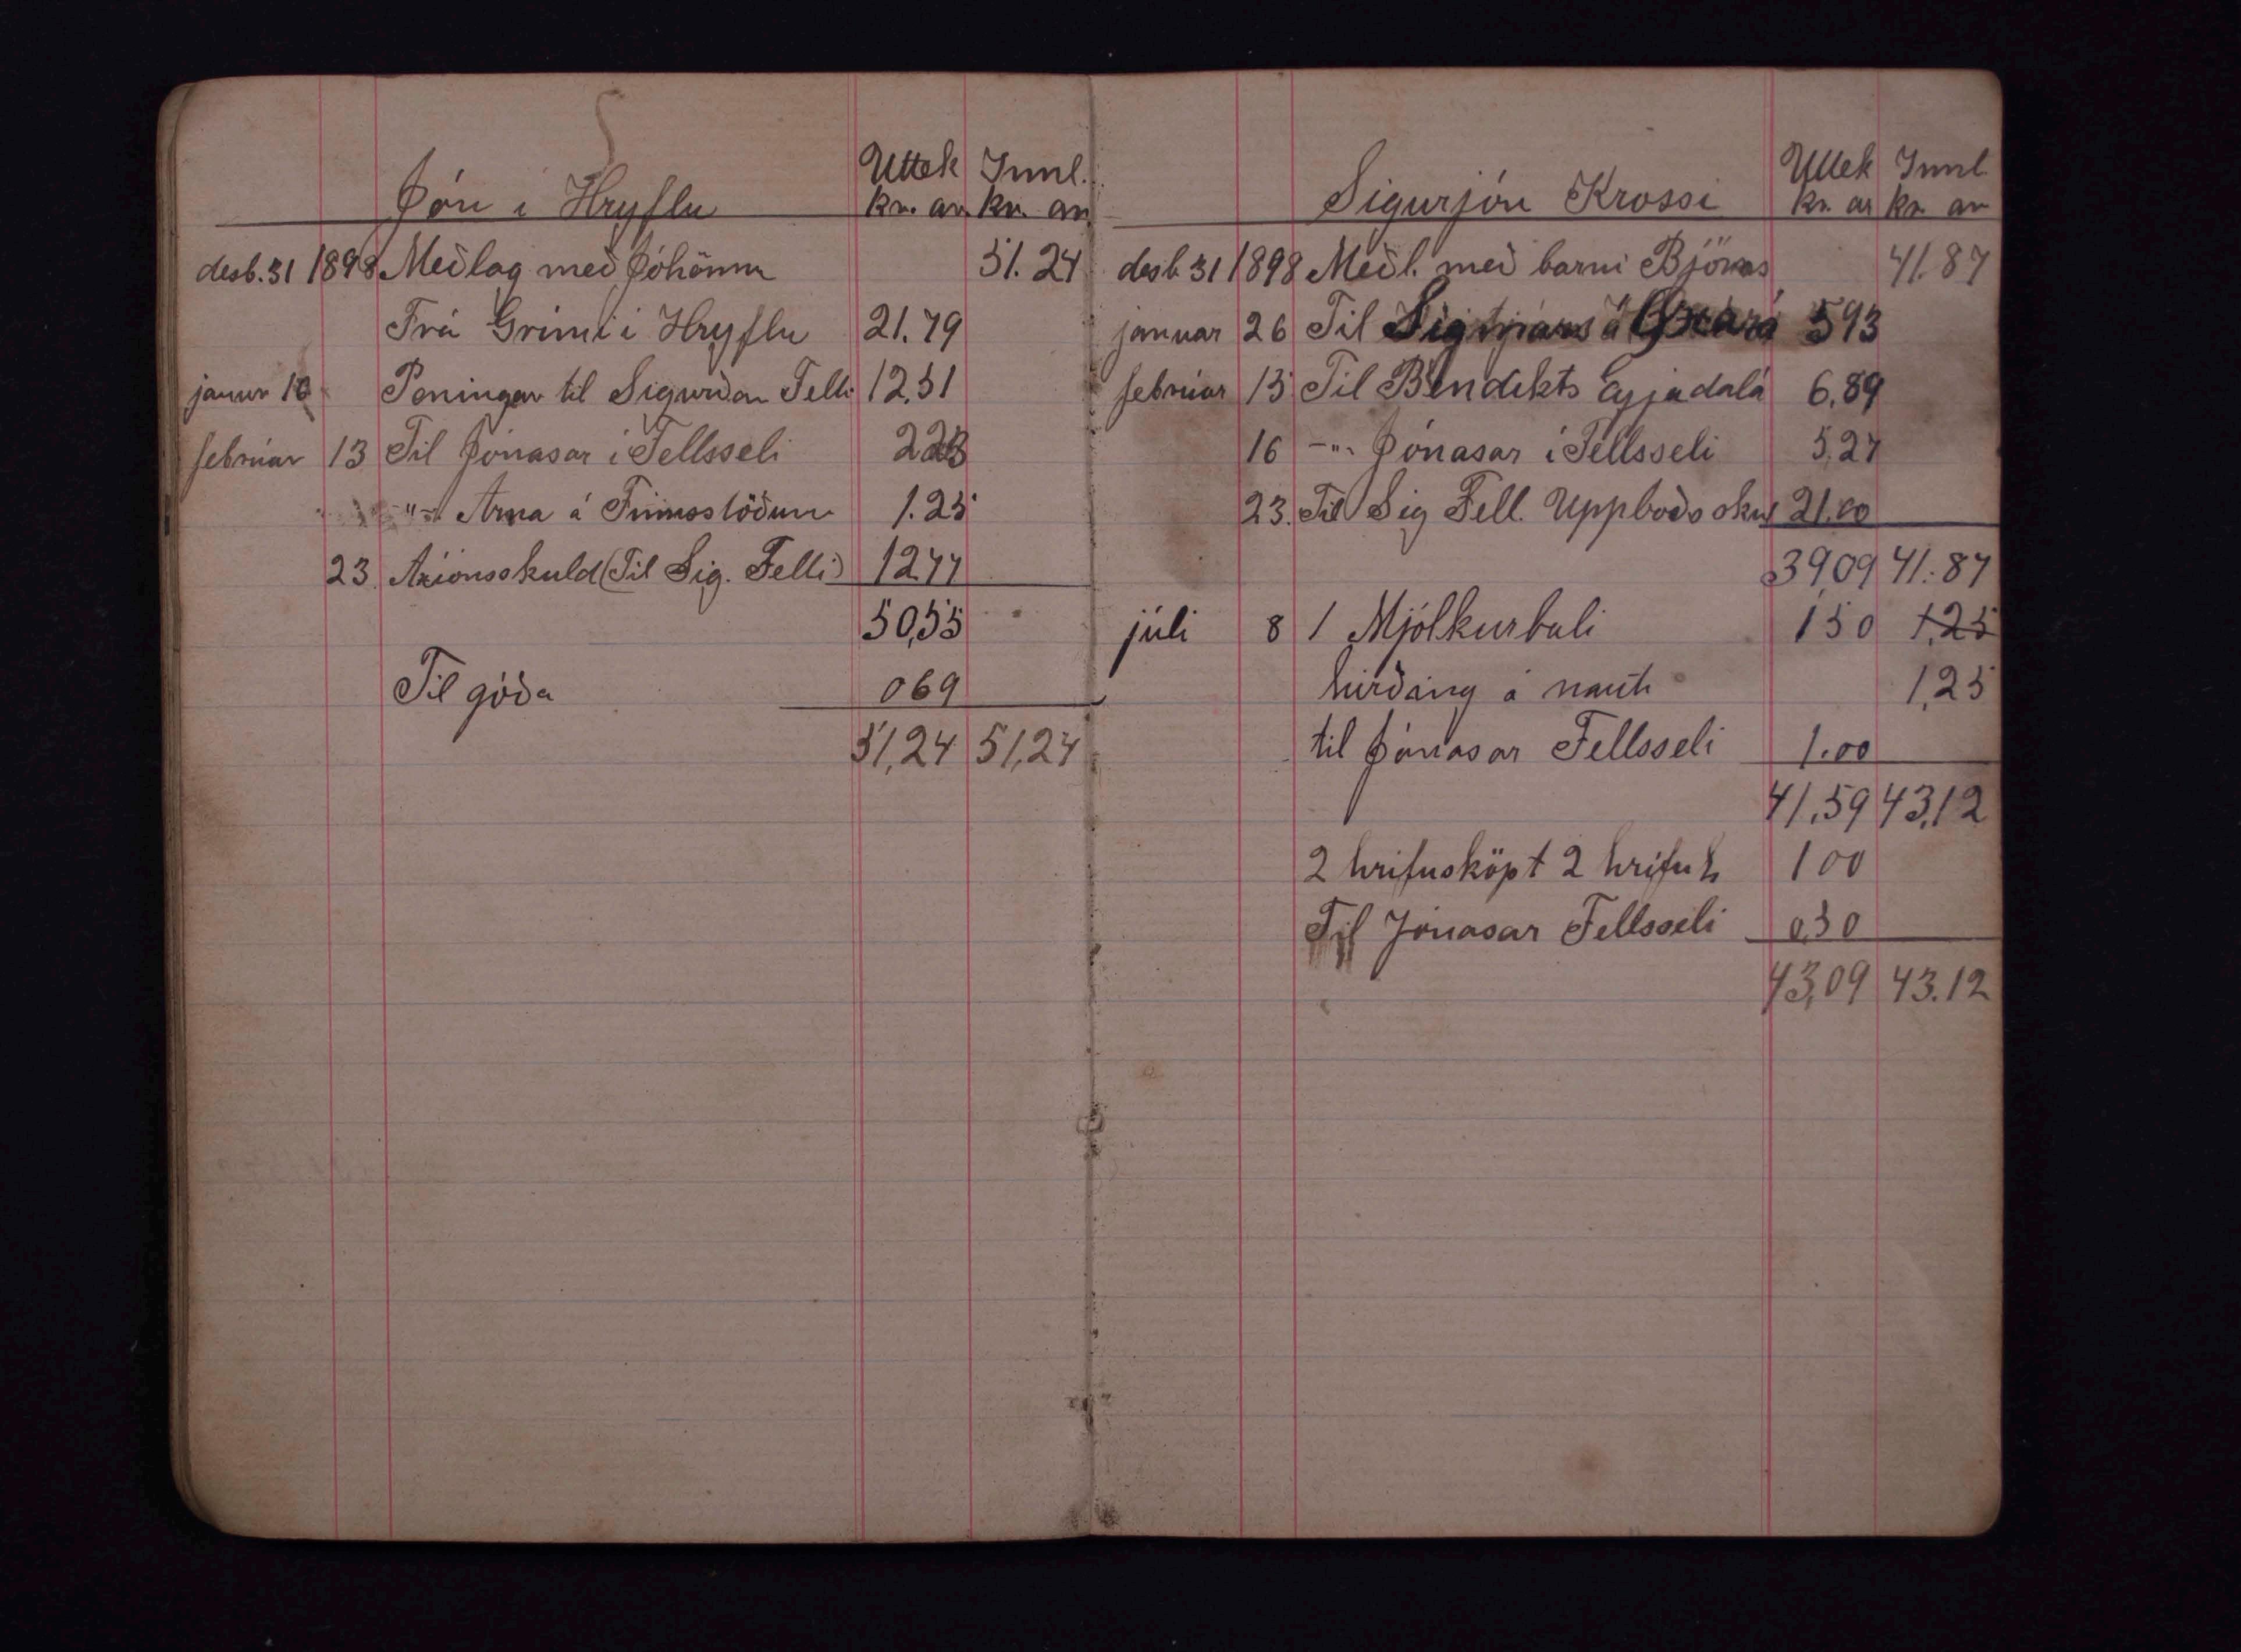 Jón i Hryflu Uttek Innl.
kr. au kr. au
desb. 31 1898 Meðlag með Jóhönnu 51.24
Frá Grimi i Hryflu 21.79
januar 16 Peningar til Sigurðar Felli 12,51
februar 13 Til Jónasar i Fellsseli 2.23
-"- Arna á Finnsstöðum 1.25
23. Axionsskuld (Til Sig. Felli) 12.77
50,55
Til góða 069
51,24 51,24
Sigurjón Krossi Uttek Innl.
kr. au kr. au
desb 31 1898 Meðl. með barni Björns 41.87
januar 26 Til 593
februar 13 Til Bendikts Eyjadalá 6,89
16 -"- Jónasar i Fellsseli 5,27
23. Til Sig Fell. Uppboðs sku 21.00
39,09 41.87
júli 8 1 Mjólkurbali 150 1,25
hirðing á nauti 1,25
til Jónasar Fellsseli 1.00
41,59 43,12
2 hrifusköpt 2 hrifuh 100
Til Jónasar Fellsseli 0,50
43,09 43.12